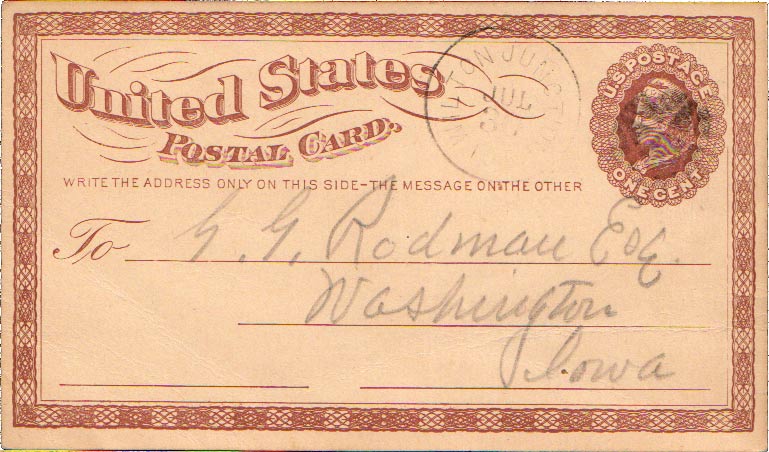 United States
POSTAL CARD.
WILTON JUNCTION
JUL
U.S. POSTAGE
ONE CENT
WRITE THE ADDRESS ONLY ON THIS SIDE-THE MESSAGE ON THE OTHER
To G. G. Rodman Esq.
Washington
Iowa